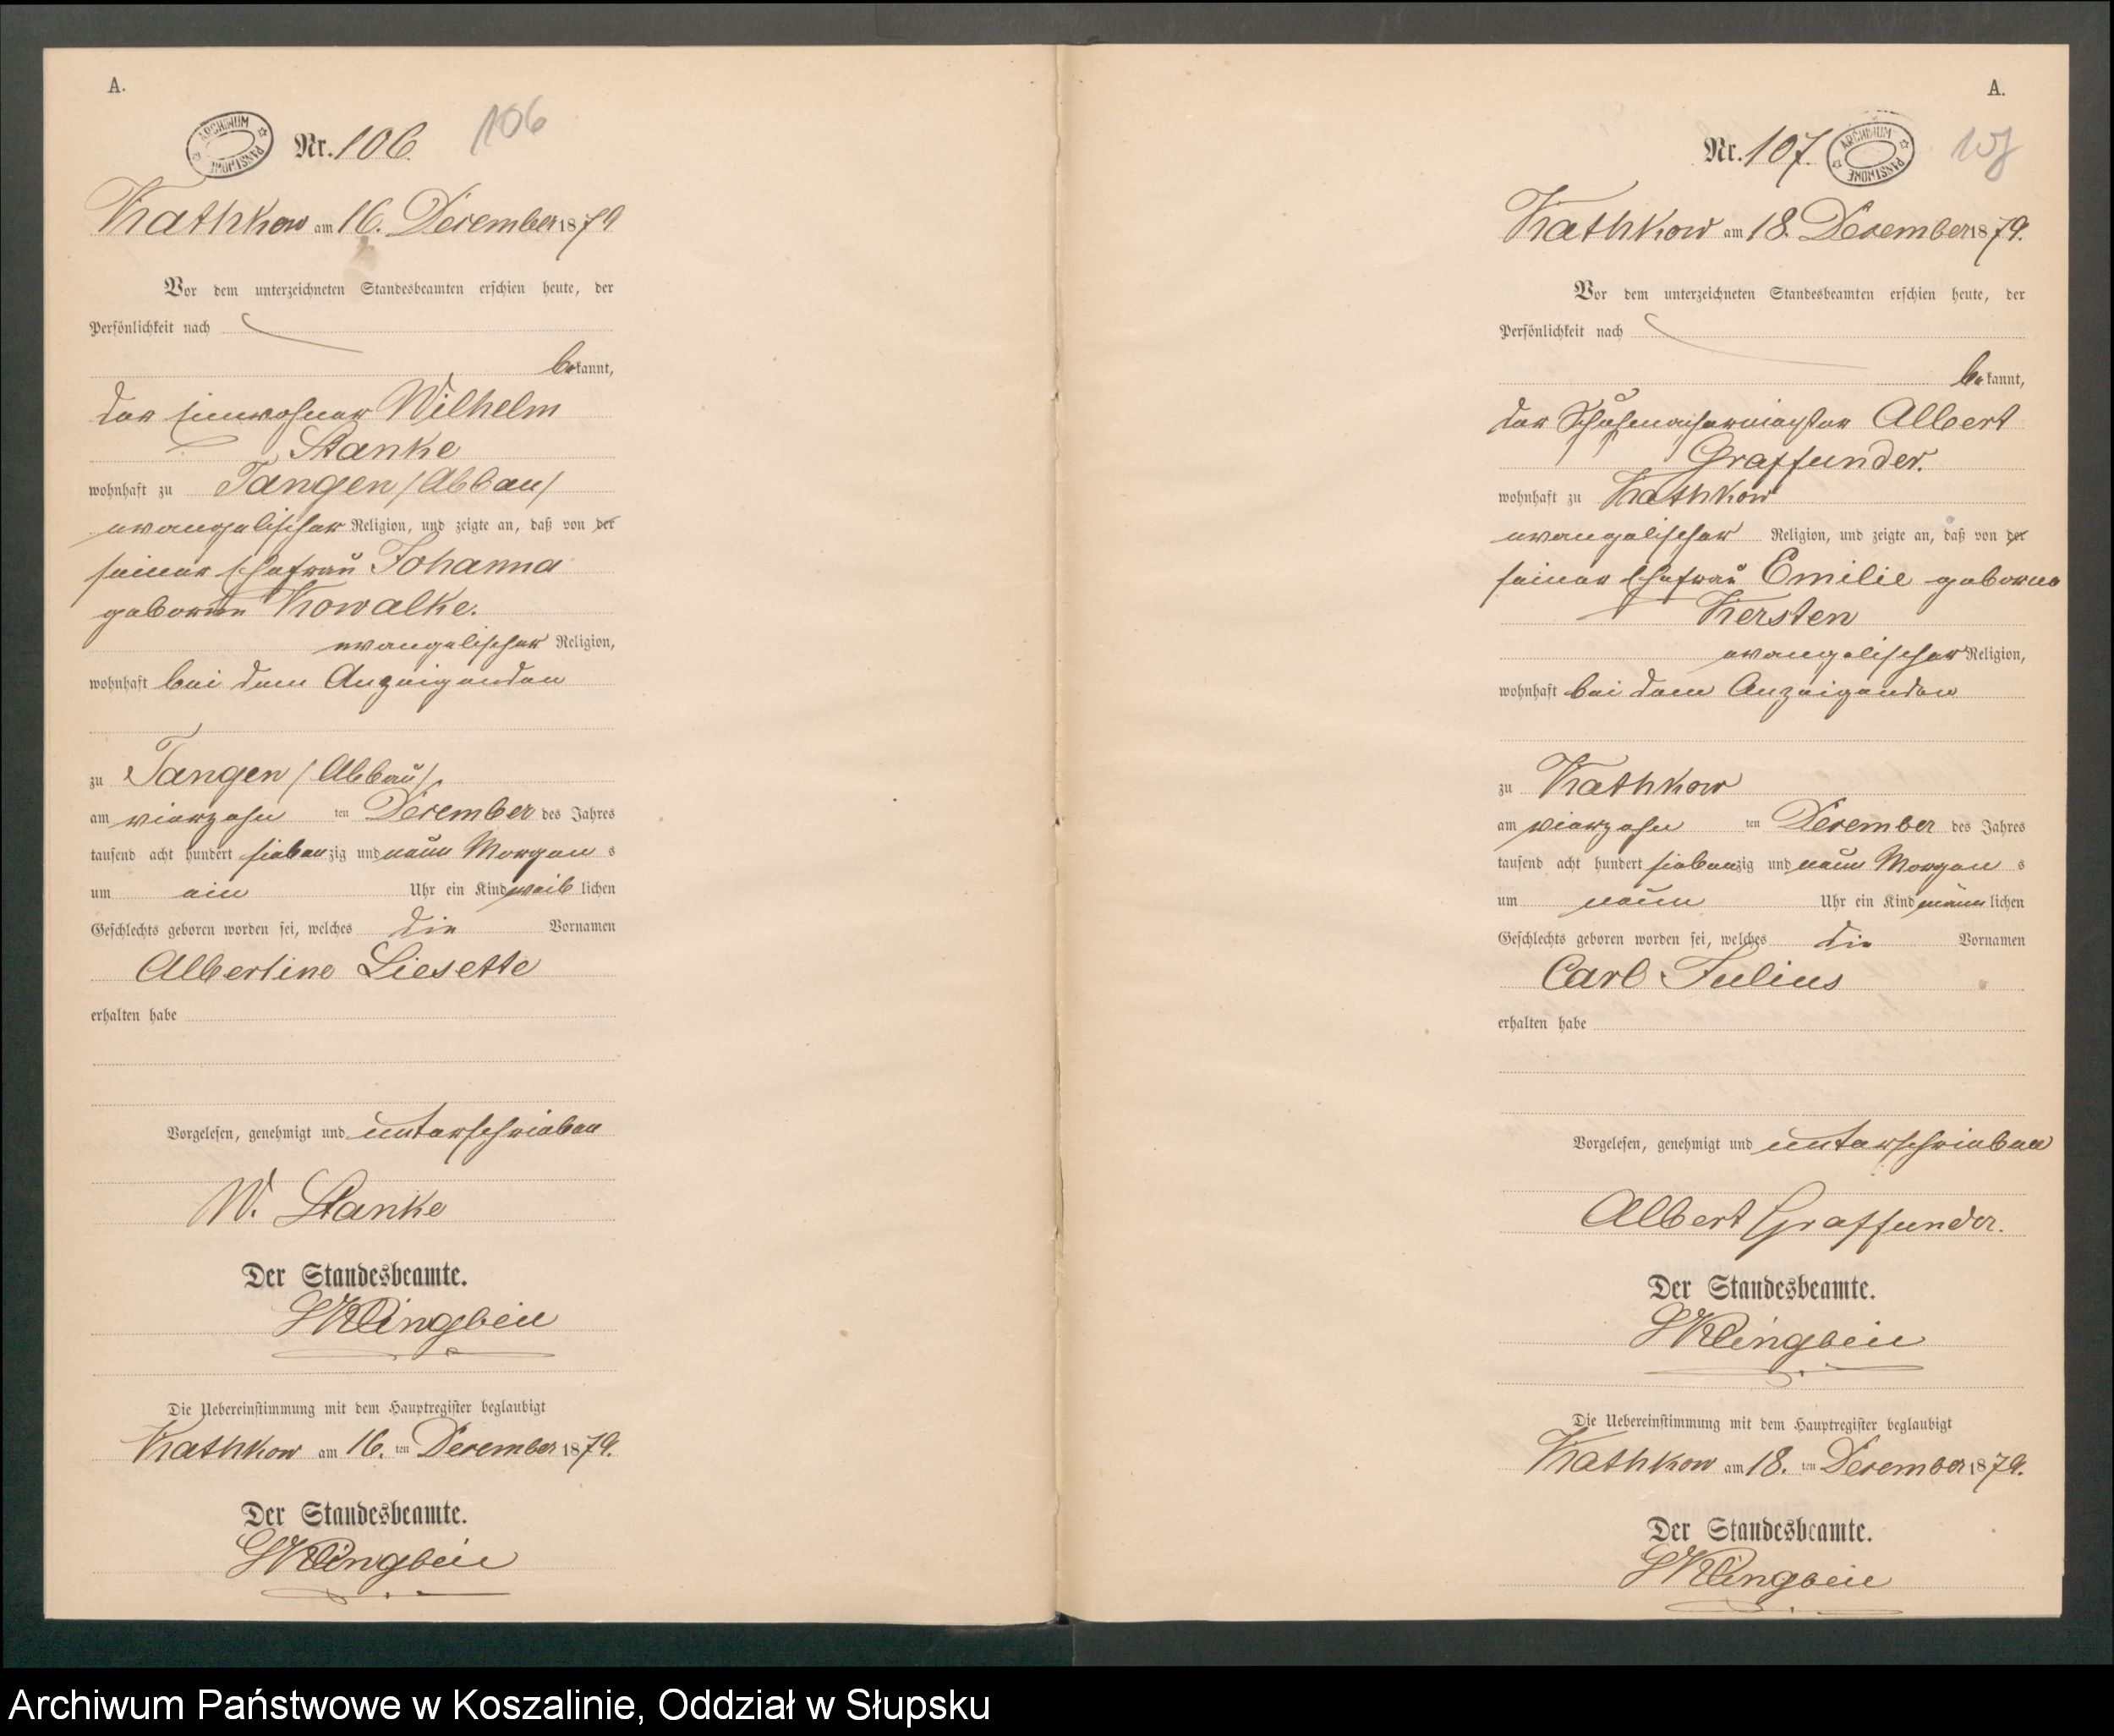 A.
ARCHIWUM PAŃSTWOWE
Nr. 106. 106
Kathkow am 16. December 1879
Vor dem unterzeichneten Standesbeamten erschien heute, der
Persönlichkeit nach
bekannt,
der Einwohner Wilhelm
Stanke
wohnhaft zu Tangen /Abbau/
evangelischer Religion, und zeigte an, daß von der
seiner Ehefrau Johanna
geborne Kowalke.
evangelischer Religion,
wohnhaft bei dem Anzeigenden
zu Tangen /Abbau/.
am vierzehn ten December des Jahres
tausend acht hundert siebenzig und neun Morgens
um ein Uhr ein Kind weiblichen
Geschlechts geboren worden sei, welches die Vornamen
Albertine Liesette
erhalten habe
Vorgelesen, genehmigt und unterschrieben
W. Stanke
Der Standesbeamte.
Klingbeil
Die Uebereinstimmung mit dem Hauptregister beglaubigt
Kathkow am 16. ten December 1879.
Der Standesbeamte.
Klingbeil
A.
Nr. 107. ARCHIWUM PAŃSTWOWE 107
Kathkow am 18. December 1879.
Vor dem unterzeichneten Standesbeamten erschien heute, der
Persönlichkeit nach
bekannt,
der Schuhmachermeister Albert
Graffunder.
wohnhaft zu Kathkow
evangelischer Religion, und zeigte an, daß von der
seiner Ehefrau Emilie geborne
Kersten
evangelischer Religion,
wohnhaft bei dem Anzeigenden
zu Kathkow
am vierzehn ten December des Jahres
tausend acht hundert siebenzig und neun Morgens
um neun Uhr ein Kind männlichen
Geschlechts geboren worden sei, welches die Vornamen
Carl Julius
erhalten habe
Vorgelesen, genehmigt und unterschrieben
Albert Graffunder.
Der Standesbeamte.
Klingbeil
Die Uebereinstimmung mit dem Hauptregister beglaubigt
Kathkow am 18. ten December 1879.
Der Standesbeamte.
Klingbeil
Archiwum Państwowe w Koszalinie, Oddział w Słupsku